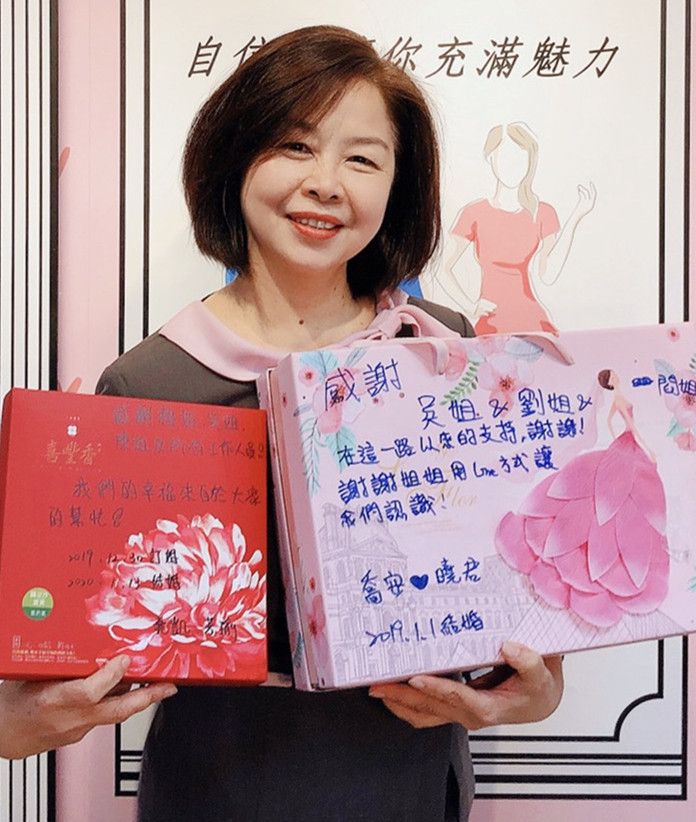 自信 你充滿魅力
喜豐香
吳姐.
工作人員!!
我們的幸福來自於大家
的幫忙!!
2019.12.30 訂婚
結婚
感謝
吳姐 & 劉姐 &
在這一路以來的支持,謝謝!
謝謝姐姐用Line方式讓
我們認識!
喬安♥曉君
2019.1.1結婚